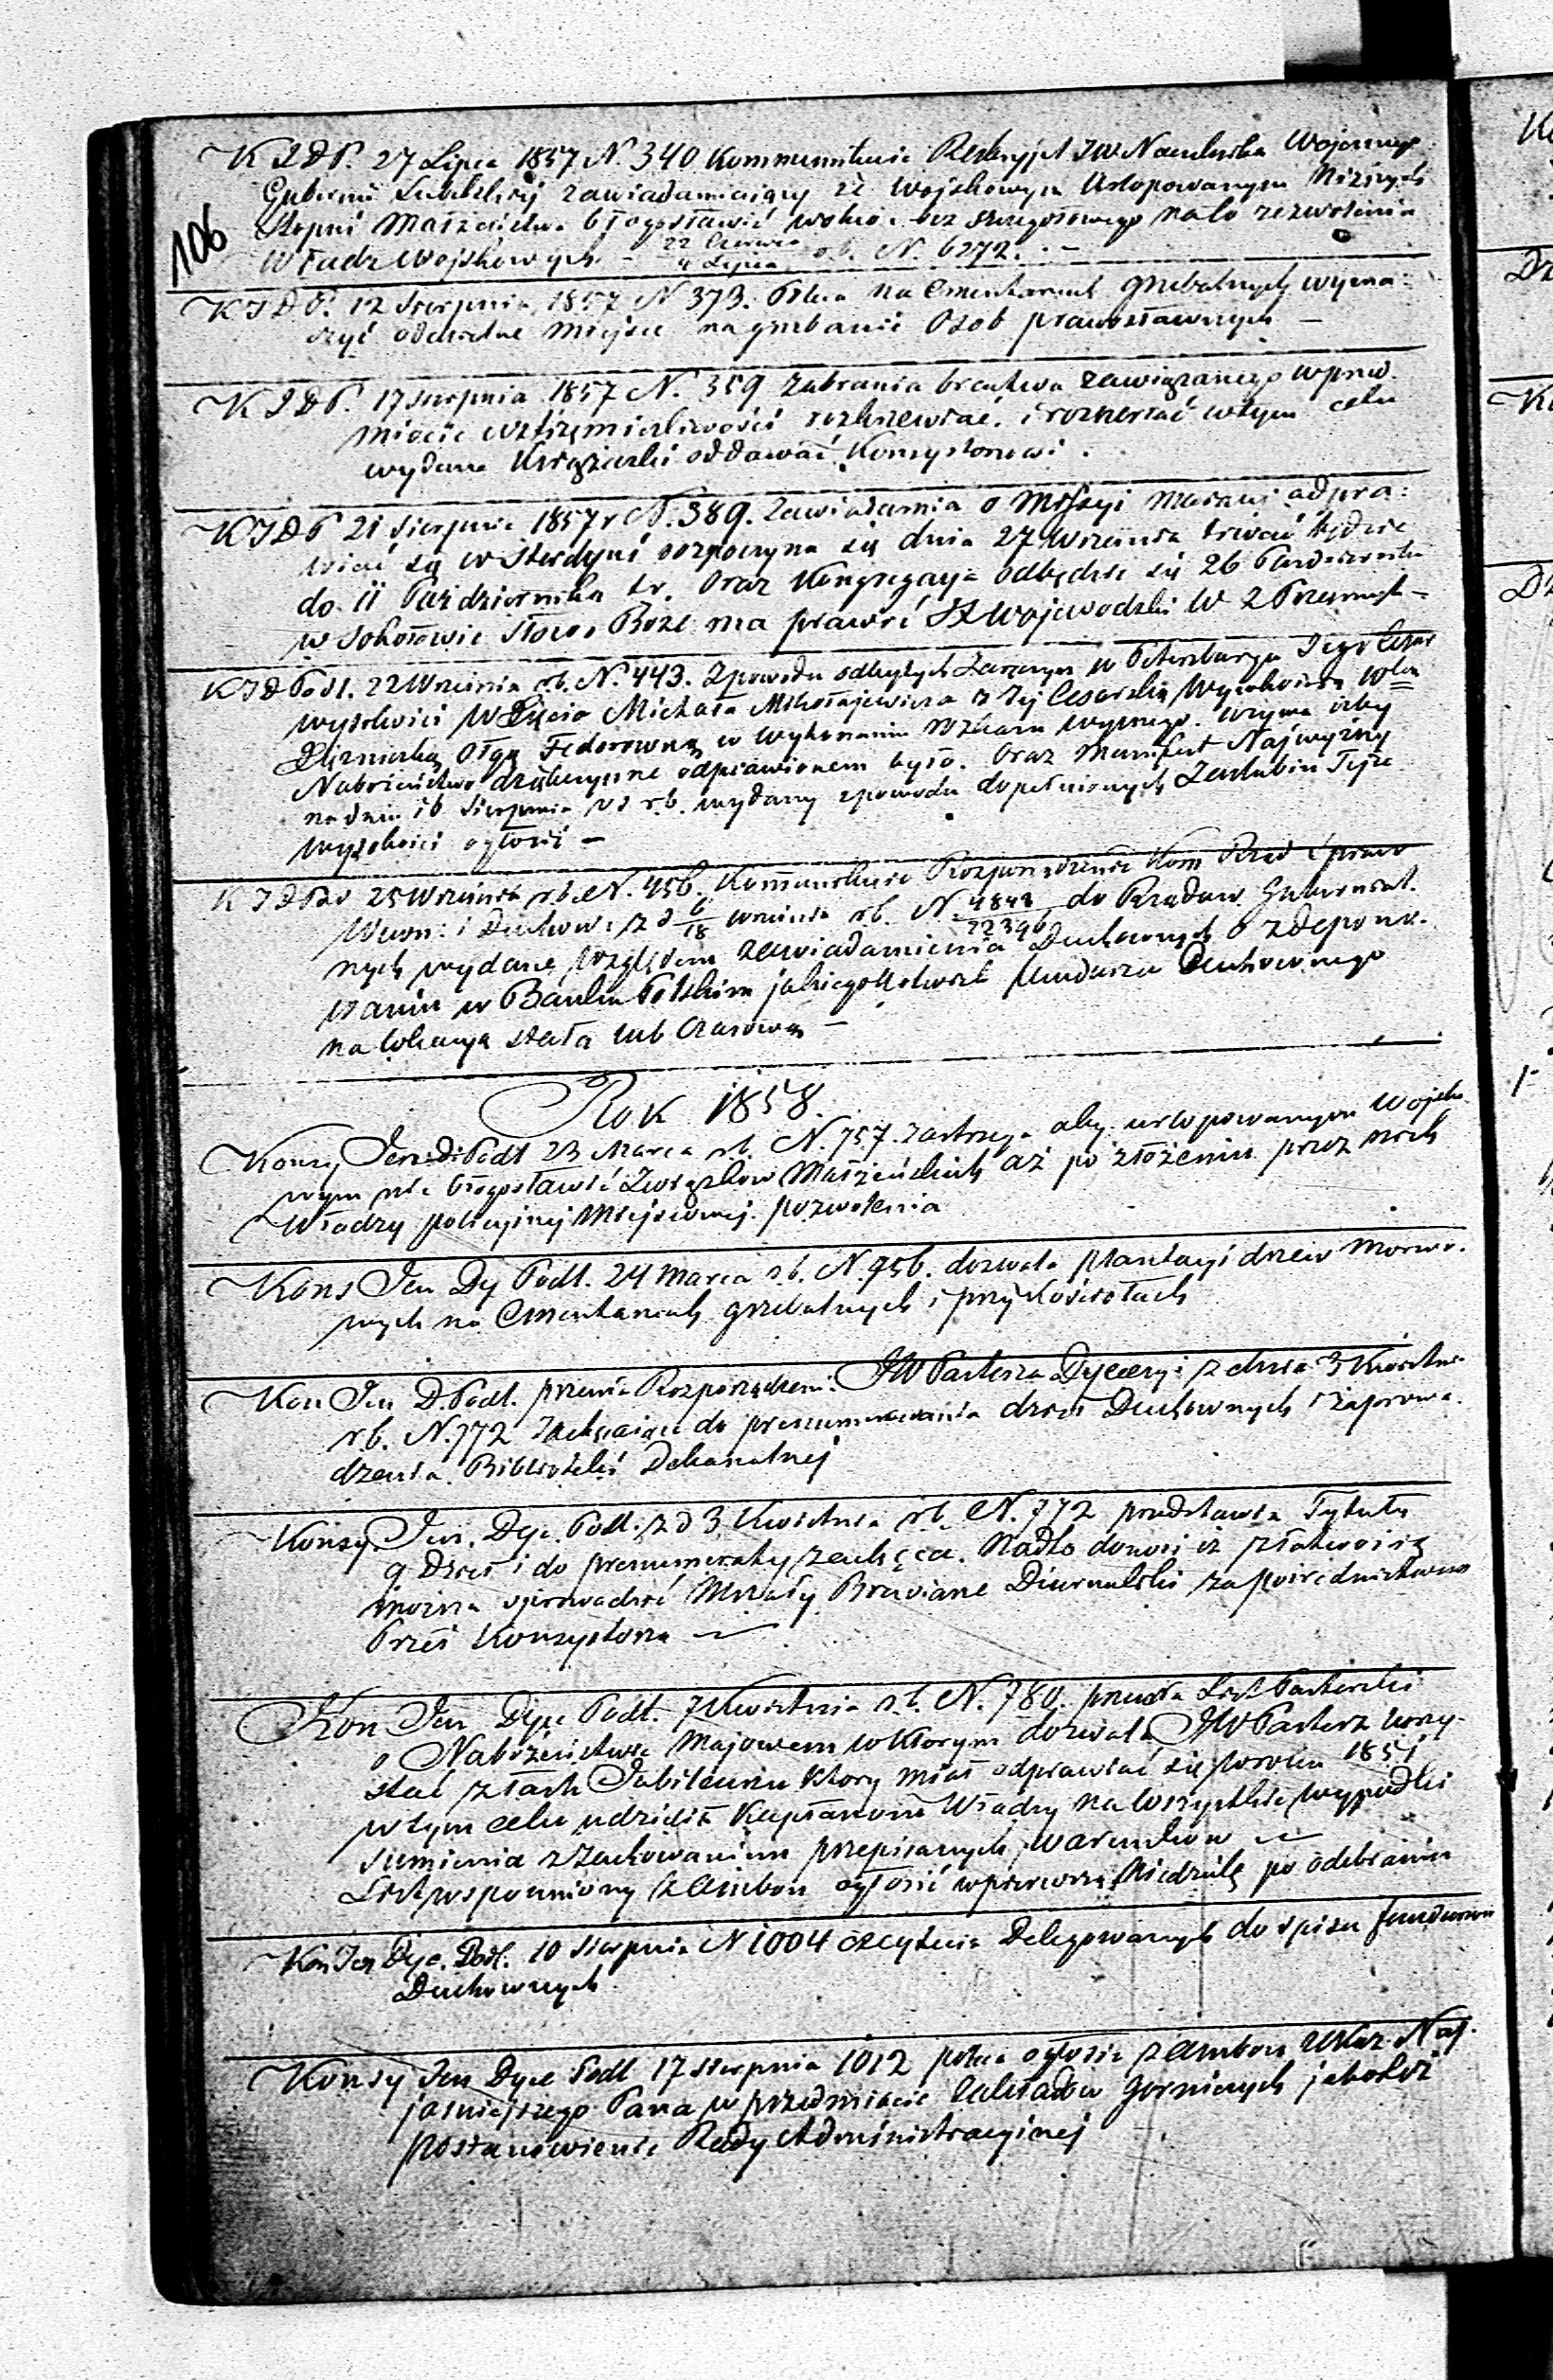 K J D P. 27 Lipca 1857 N. 340 Kommunikuje Reskrypt JW Naczelnika Wojennego
Gubernii Lubelskiej zawiadamiający że Wojskowym Urlopowanym Niższych
Stopni Małżeństwa błogosławić wolno bez szczegółowego na to zezwolenia
106
Władz Wojskowych - 22 Czerwca / 4 Lipca r.b. N. 6272. -
K J D P. 12 Sierpnia 1857 N 373. Poleca na Cmentarzach grzebalnych wyzna:
czyć oddzielne miejsce na grzebanie Osób prawosławnych -
K J D P. 17 Sierpnia 1857 N. 359 Zabrania bractwa zawiązanego w przed
miocie wstrzemięźliwości rozkrzewiać. i roznosząć w tym celu
wydane Książeczki oddawać Konsystorzowi.
K J D P 21 Sierpnia 1857 r N. 389. Zawiadamia o Missyi mającej odpra:
wiać się w Sterdyni rozpoczyna się dnia 27 Września trwać będzie
do 11 Października br. Oraz Kongregacya odbędzie się 26 Października
w Sokołowie Słowo Boże ma prawić X Wojewodzki W 2 Przemysł -
K J D Podl. 22 Września r.b. N. 443. Z powodu odbytych Zaręczyn w Petersburgu Jego Cesar
Wysokości W Xięcia Michała Mikołajewicza z Jej Cesarską Wysokością Wlka
Xiężniczką Olgą Fedorowną w wykonaniu rozkazu wyższego. wzywa żeby
Nabożeństwo dziękczynne odprawionem było. Oraz Manifest Najwyższy
na dniu 16 Sierpnia v s r.b. wydany z powodu dopełnionych Zaślubin Tejże
Wysokości ogłosić -
K J D Pod 25 Września r.b. N. 456. Kommunikuje Rozporządzenie Kom Rząd Spraw
Wewn: i Duchow: z d 6/18 września r.b. N. 4843/22346 do Rządów Gubernial.
nych wydane względem zawiadamienia Duchownych o zdepono.
waniu w Banku Polskim jakiegokolwiek funduszu Duchownego
na lokacyą stałą lub Czasową -
Rok 1858.
Konsy Jen: D: Podl 23 Marca r.b. N. 757. zastrzega aby urlopowanym Wojsko.
wym nie błogosławić Związków Małżeńskich aż po złożeniu przez nich
Władzy policyjnej Miejscowej pozwolenia
Kons Jen Dy Podl. 24 Marca r.b. N. 756. dozwala plantacyi drzew morwo.
wych na Cmentarzach grzebalnych i przy Kościołach
Kon Jen D. Podl. przesyła Rozporządzeni. JW Pasterza Dyecezyi z dnia 3 Kwietnia
r.b. N. 772 Zachęcając do prenumerowania dzieł Duchownych i zaprowa.
dzenia Biblioteki Dekanalnej
Konsy. Jen. Dye. Podl. z d 3 Kwietnia r.b. N. 772 przedstawia Tytuły
9 Dzieł i do prenumeraty zachęca. Nadto donosi iż z łatwością
można sprowadzić Mszały Brewiarze Diurnalki za pośrednictwem
Preś Konsystorza -
Kon Jen Dye. Podl. 7 Kwietnia r.b. N. 780. przesyła List Pasterski
o Nabożeństwie Majowem w którym dozwala JW Pasterz korzy-
stać z łask Jubileuszu który miał odprawiać się w roku 1851
w tym celu udziela Kapłanom Władzy na wszystkie wypadki
sumienia z zachowaniem przepisanych warunków -
List wspomniony z Ambon ogłosić w pierwszą Niedzielę po odebraniu
Kon Jen Dye. Podl. 10 Sierpnia N 1004 Delegowanych do spisu funduszów
Duchownych
Konsy Jen Dyec Podl 17 Sierpnia 1012 poleca ogłosić z Ambon Ukaz Naj.
jaśniejszego Pana w przedmiocie Zakładów Górniczych jakoteż
postanowienie Rady Administracyjnej